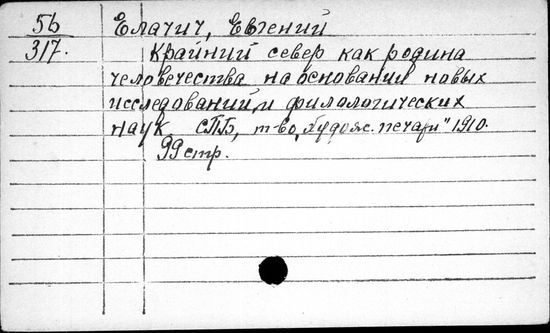 56 Елачич, Евгений
317. Крайний север как родина
человечества на основании новых
исследований, и филологических
наук. СПБ, т-во „Худож. печати" 1910.
99 стр.